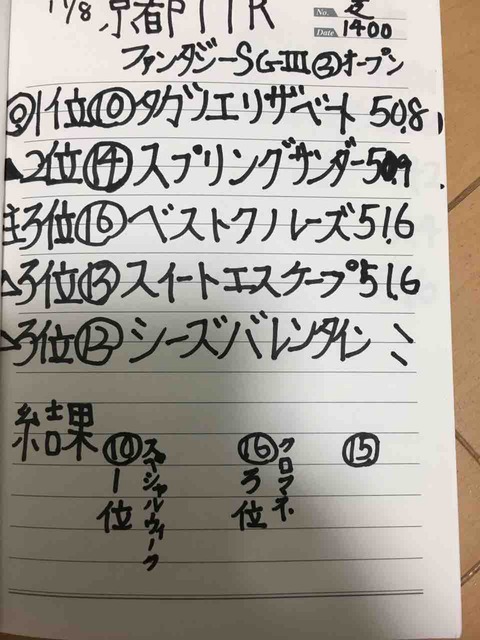 11/8 京都町11R
No. 芝
Date 1400
ファンタジーS G-III ②オープン
◎1位⑩タガノエリザベート 50.8
▲2位⑭スプリングサンダー 50.9
注3位⑯ベストクルーズ 51.6
△3位⑬スイートエスケープ 51.6
3位⑫シーズバレンタイン 〃
結果 ⑩ ⑯ ⑮
1位 スペシャルウィーク
3位 クロフネ